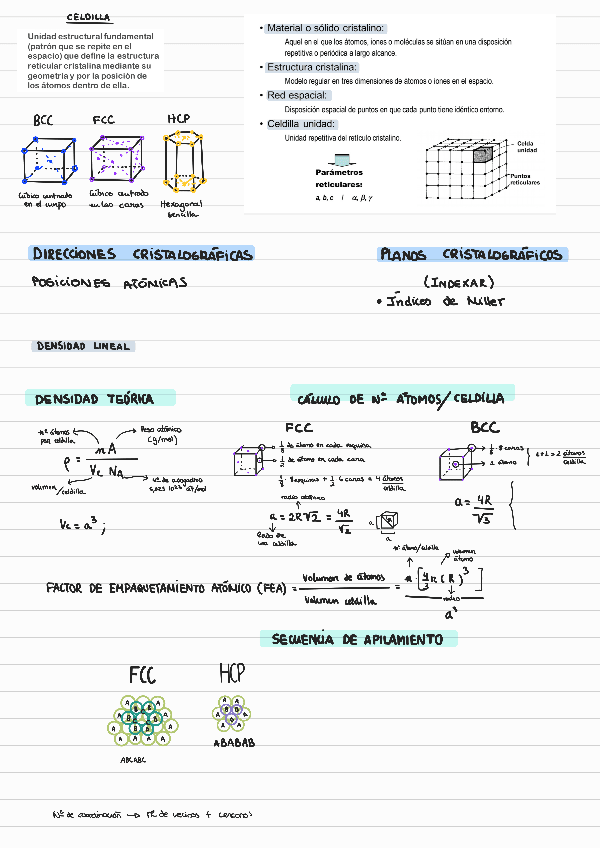 CELDILLA
Unidad estructural fundamental
(patrón que se repite en el
espacio) que define la estructura
reticular cristalina mediante su
geometría y por la posición de
los átomos dentro de ella.
• Material o sólido cristalino:
Aquel en el que los átomos, iones o moléculas se sitúan en una disposición
repetitiva o periódica a largo alcance.
• Estructura cristalina:
Modelo regular en tres dimensiones de átomos o iones en el espacio.
• Red espacial:
Disposición espacial de puntos en que cada punto tiene idéntico entorno.
• Celdilla unidad:
Unidad repetitiva del retículo cristalino.
Parámetros
reticulares:
a, b, c / α, β, γ
Celda
unidad
Puntos
reticulares
BCC FCC HCP
Cúbico centrado
en el cuerpo
Cúbico centrado
en las caras
Hexagonal
sencilla
DIRECCIONES CRISTALOGRÁFICAS
POSICIONES ATÓMICAS
PLANOS CRISTALOGRÁFICOS
(INDEXAR)
• Índices de Miller
DENSIDAD LINEAL
DENSIDAD TEÓRICA
nº átomos
por celdilla
Peso atómico
(g/mol)
ρ = nA / Vc NA
volumen
/celdilla
nº de avogadro
6,023 10²³ at/mol
Vc = a³ ;
CÁLCULO DE Nº ÁTOMOS/CELDILLA
FCC
1/8 de átomo en cada esquina
1/2 de átomo en cada cara
1/8 · 8 esquinas + 1/2 · 6 caras = 4 átomos/celdilla
radio atómico
a = 2R√2 = 4R/√2
a
a
BCC
1 átomo
1+1 = 2 átomos/celdilla
a = 4R/√3
nº átomo/celdilla
volumen
átomo
FACTOR DE EMPAQUETAMIENTO ATÓMICO (FEA) = Volumen de átomos / Volumen celdilla = n · [4/3 π (R)³] / a³
radio
SECUENCIA DE APILAMIENTO
FCC HCP
ABCABC
ABABAB
Nº de coordinación → nº de vecinos + cercanos